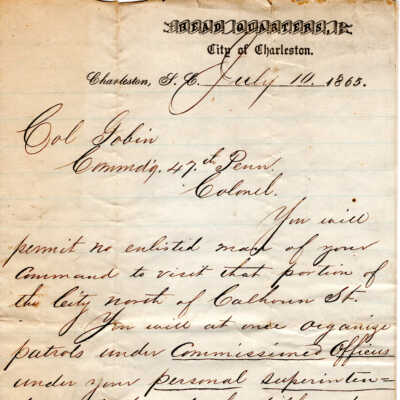 HEAD QUARTERS,
City of Charleston.
Charleston, S. C. July 10, 1865.
Col Gobin
Commdg. 47th Penn.
Colonel.
You will
permit no enlisted man of your
Command to visit that portion of
the City north of Calhoun St.
You will at once organize
patrols under Commissioned Officers
under your personal superinten=